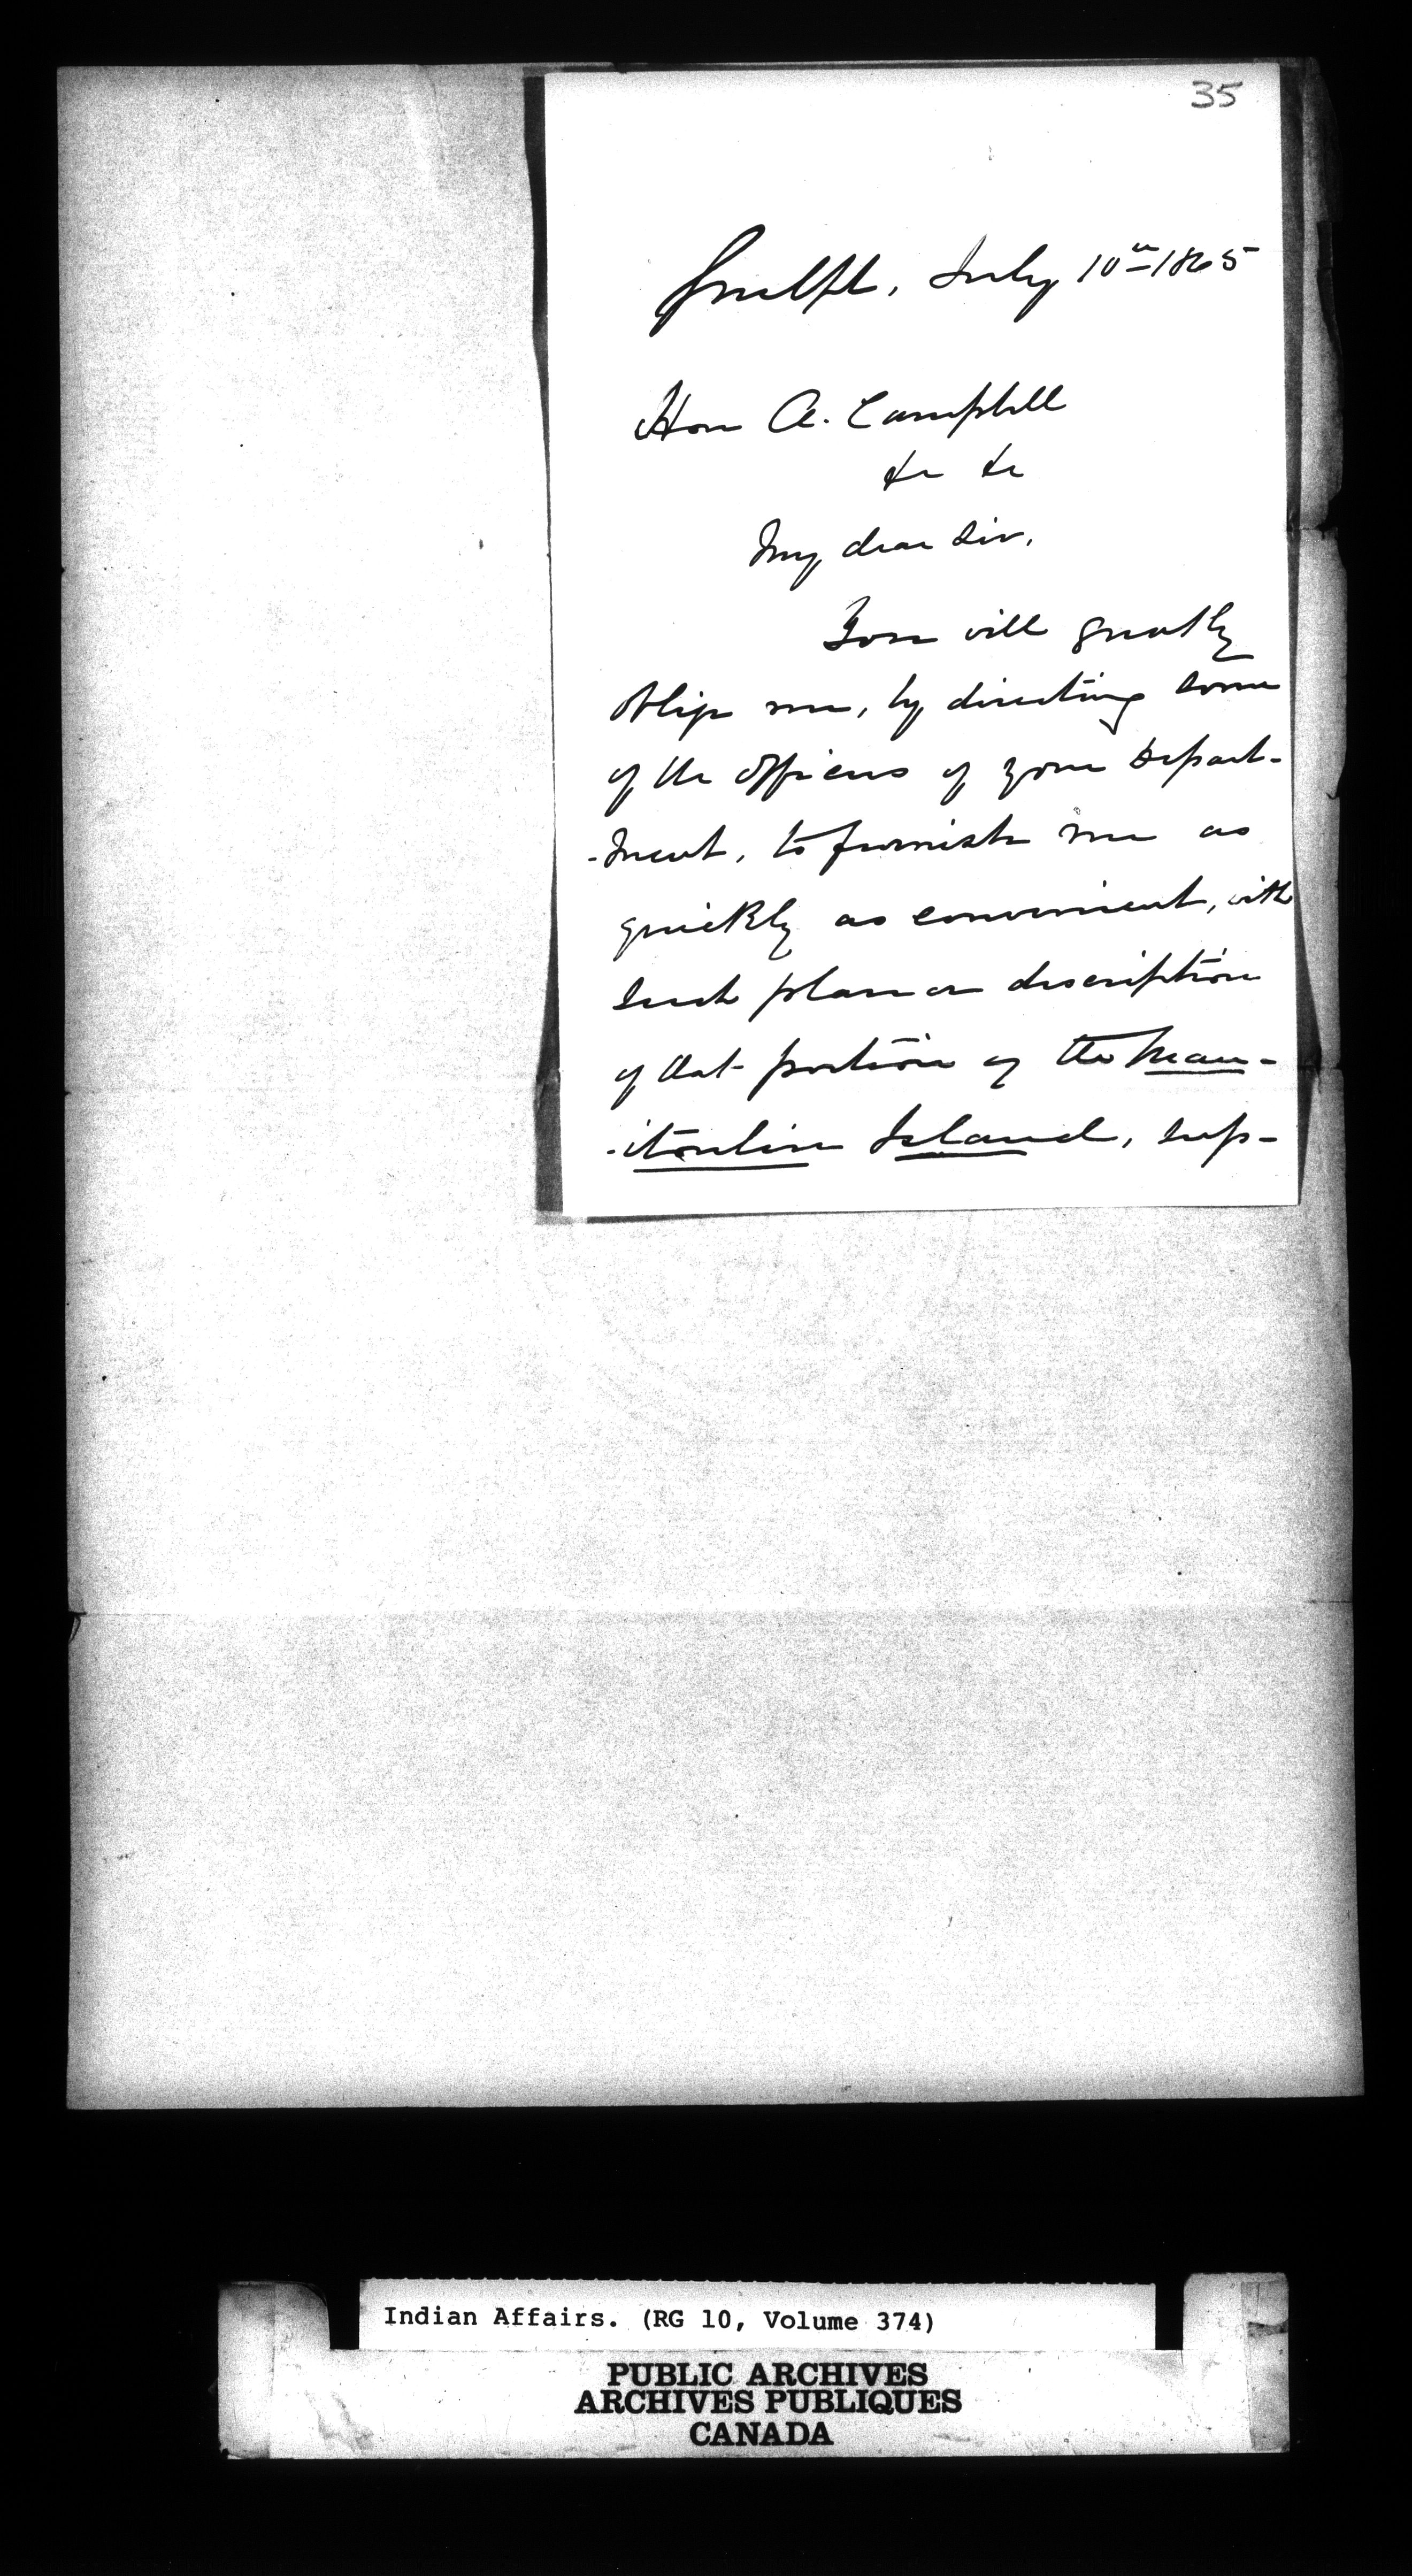 35
Guelph, July 10th 1865
Hon A. Campbell
&c &c
My dear Sir,
You will greatly
oblige me, by directing some
of the officers of your Depart-
-ment, to furnish me as
quickly as convenient, with
such plan or description
of that portion of the Man-
-itoulin Island, sup-
Indian Affairs. (RG 10, Volume 374)
PUBLIC ARCHIVES
ARCHIVES PUBLIQUES
CANADA